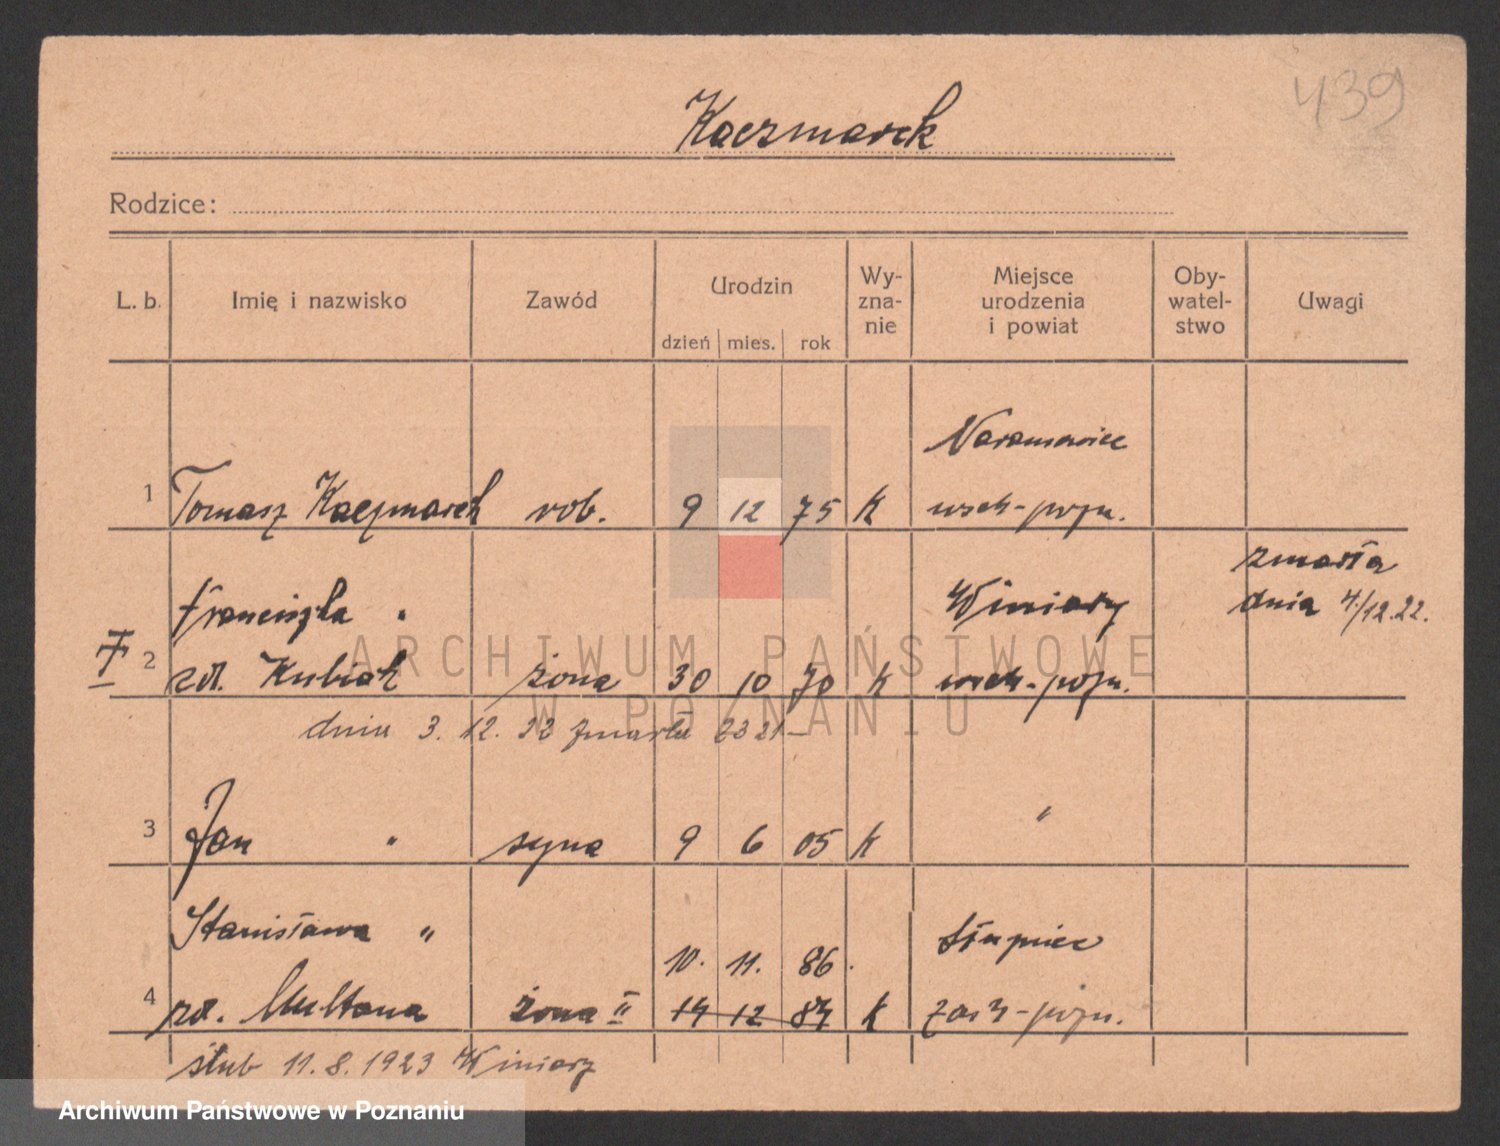 439
Kaczmarek
Rodzice:
L. b. Imię i nazwisko Zawód Urodzin dzień mies. rok Wy-zna-nie Miejsce urodzenia i powiat Oby-watel-stwo Uwagi
Naramowice
1 Tomasz Kaczmarek rob. 9 12 75 K wsch-pozn.
zmarła
Franciszka " Winiary dnia 4/12.22.
2 zd. Kubiak żona 30 10 70 K wsch-pozn.
dnia 3. 12. 22 zmarła 2321-
3 Jan " syna 9 6 05 K "
Stanisława " Słupiec
10. 11. 86.
4 zd. Multana żona II 14 12 84 K zach-pozn.
ślub 11. 8. 1923 Winiary
ARCHIWUM PAŃSTWOWE
W POZNANIU
Archiwum Państwowe w Poznaniu